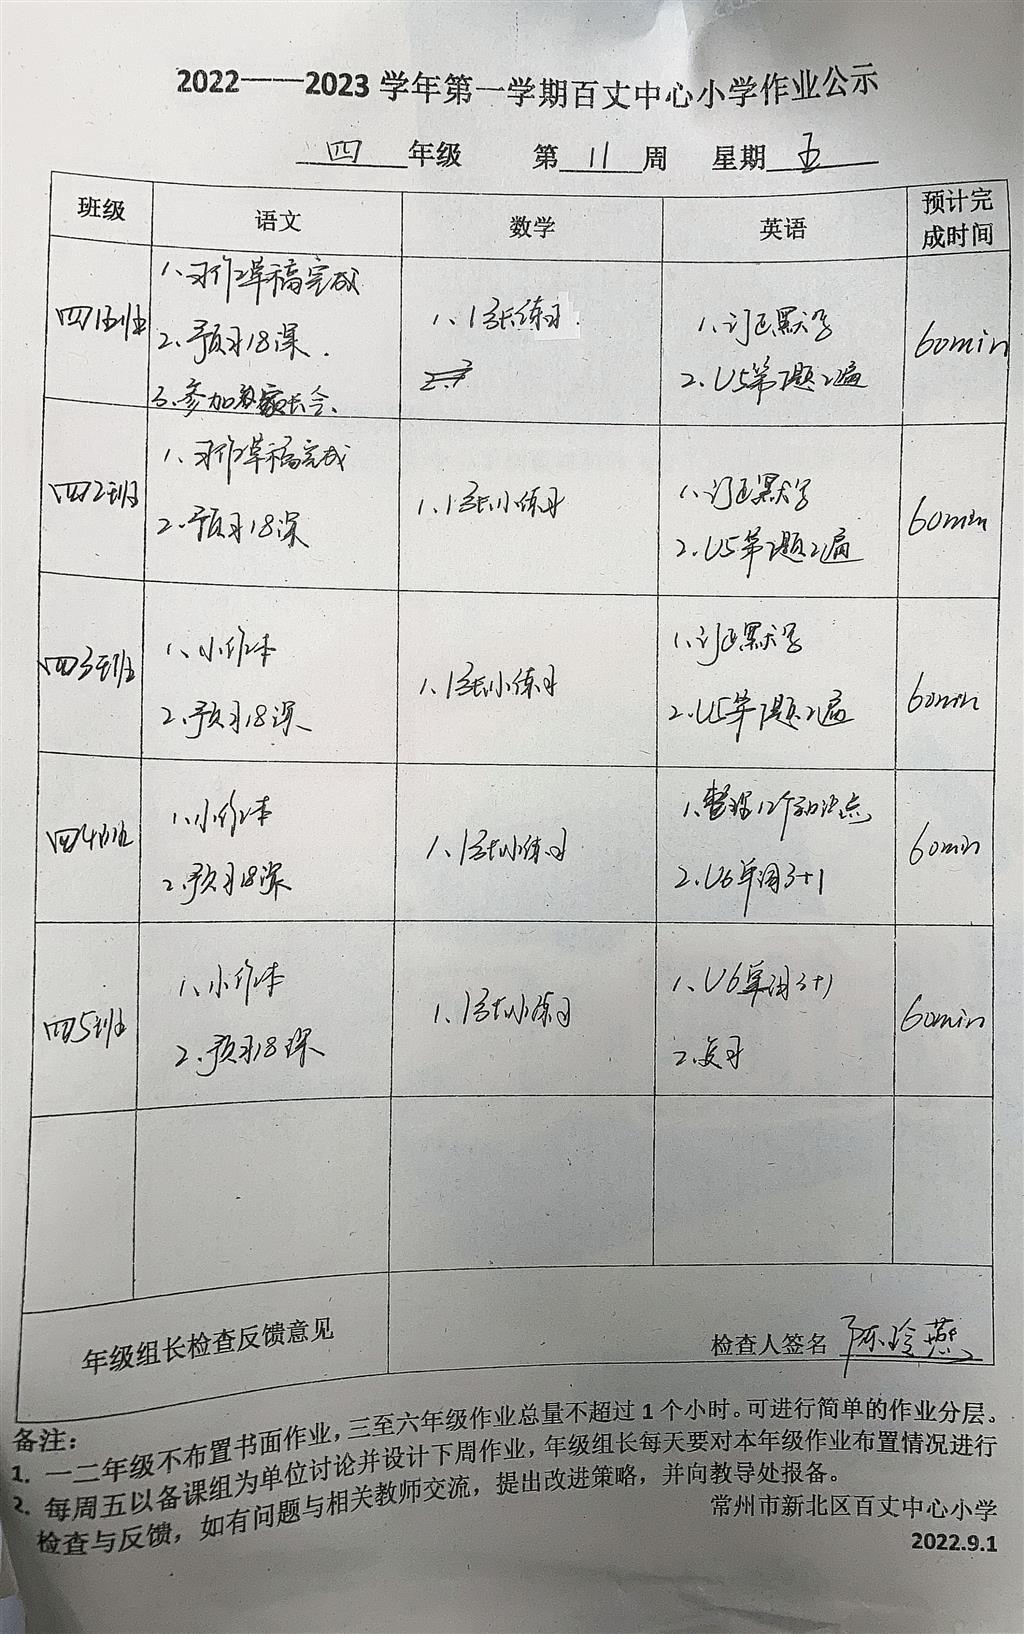 2022——2023 学年第一学期百丈中心小学作业公示
四 年级 第 11 周 星期 五
班级 语文 数学 英语 预计完成时间
四1班
1、习作2草稿完成
2、预习18课.
3、参加家长会、
1、1张练习.
1、订正默写
2、U5第7题2遍
60min
四2班
1、习作2草稿完成
2、预习18课
1、1张小练习
1、订正默写
2、U5第7题2遍
60min
四3班
1、小作本
2、预习18课
1、1张小练习
1、订正默写
2、U5第7题2遍
60min
四4班
1、小作本
2、预习18课
1、1张小练习
1、整理12个知识点
2、U6单词3+1
60min
四5班
1、小作本
2、预习18课
1、1张小练习
1、U6单词3+1
2、复习
60min
年级组长检查反馈意见
检查人签名 陈玲燕
备注：
1. 一二年级不布置书面作业，三至六年级作业总量不超过 1 个小时。可进行简单的作业分层。
2. 每周五以备课组为单位讨论并设计下周作业，年级组长每天要对本年级作业布置情况进行
检查与反馈，如有问题与相关教师交流，提出改进策略，并向教导处报备。
常州市新北区百丈中心小学
2022.9.1